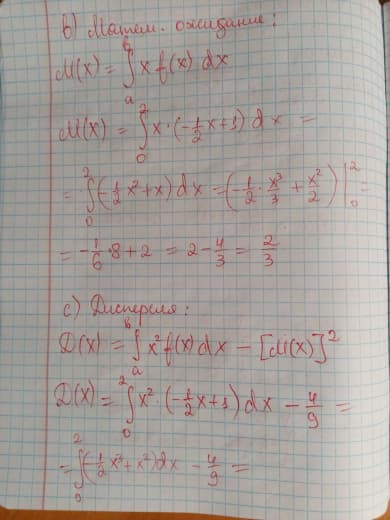 b) Матем. ожидание:
M(x) = ∫ₐᵇ x f(x) dx
M(x) = ∫₀² x · (-1/2 x + 1) dx =
= ∫₀² (-1/2 x² + x) dx = (-1/2 · x³/3 + x²/2) |₀² =
= -1/6 · 8 + 2 = 2 - 4/3 = 2/3
c) Дисперсия:
D(x) = ∫ₐᵇ x² f(x) dx - [M(x)]²
D(x) = ∫₀² x² · (-1/2 x + 1) dx - 4/9 =
= ∫₀² (-1/2 x³ + x²) dx - 4/9 =